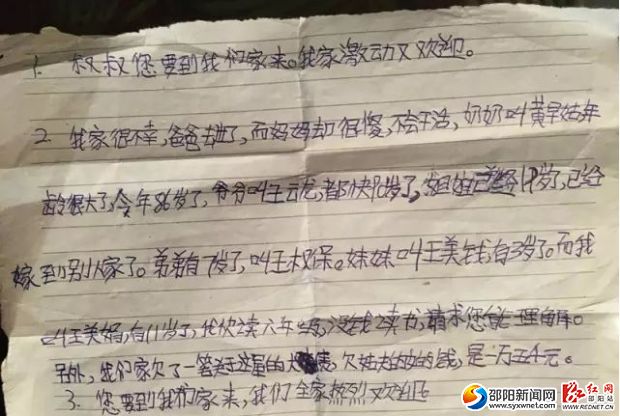 1. 叔叔您要到我们家来。我家激动又欢迎。
2. 我家很不幸,爸爸去世了,而妈妈却很傻,不会干活,奶奶叫黄早姑年
龄很大了,今年86岁了,爷爷叫王云龙,都快岁了,姐姐已经19岁了,已经
嫁到别人家了。弟弟有7岁了,叫王权保。妹妹叫王美钱,有3岁了。而我
叫王美娟,有11岁了,我快读六年级,没钱读书,请求您能理解。
另外,我们家欠了一笔的大债,欠姑姑的钱,是一万五千元。
3. 您要到我们家来,我们全家热烈又欢迎
邵阳新闻网
www.syxwnet.com
红网
邵阳站
WWW.REDNET.CN